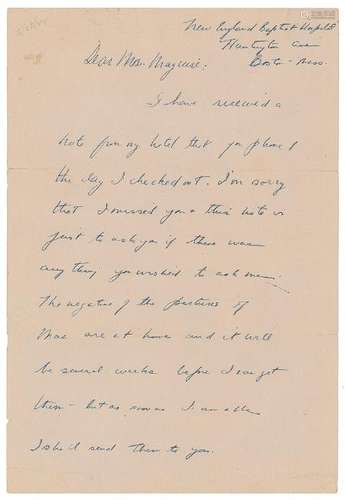 New England Baptist Hospital
Huntington Ave
Boston - Mass.
Dear Mrs. Maguire:
I have received a
note from my hotel that you phoned
the day I checked out. I'm sorry
that I missed you & this note is
just to ask you if there was
any thing you wished to ask me.
The negative of the pictures of
Mac are at home and it will
be several weeks before I can get
them - but as soon as I am able
I shall send them to you.